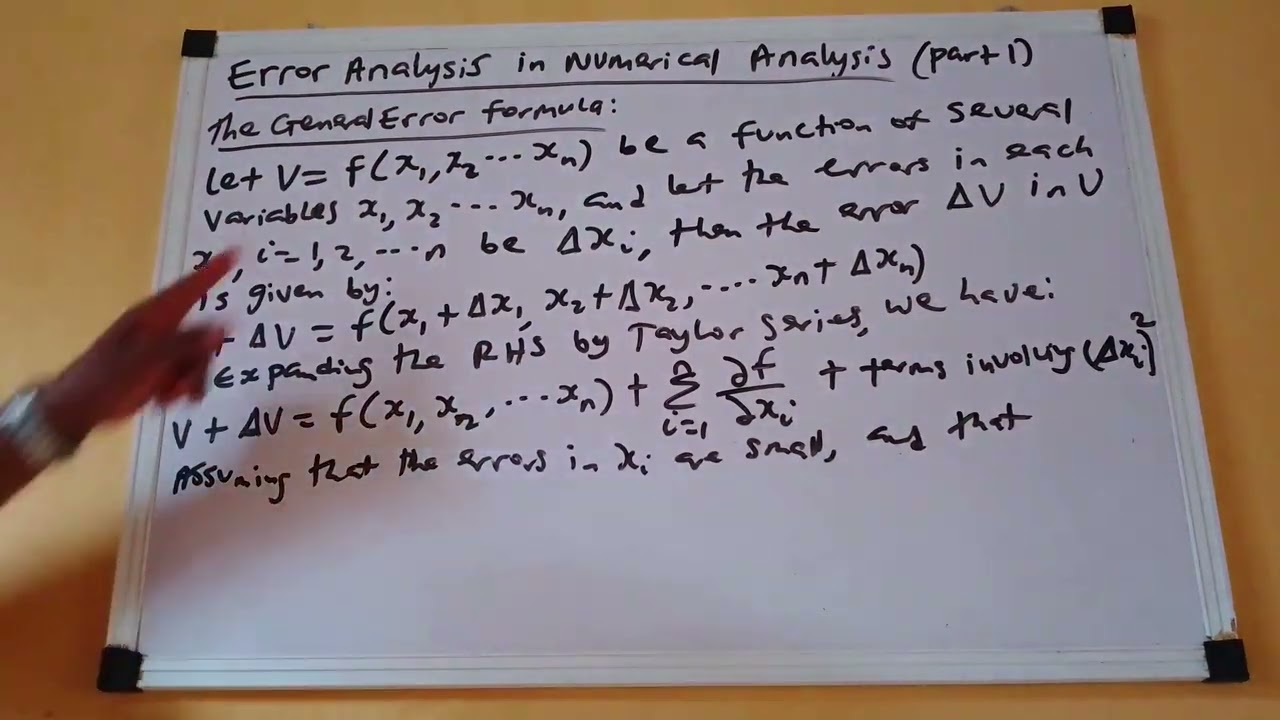 Error Analysis in Numerical Analysis (part 1)
The General Error formula:
Let V = f(x₁, x₂ ... xₙ) be a function of several
variables x₁, x₂ ... xₙ, and let the errors in each
i = 1, 2, ... n be Δxᵢ, then the error ΔV in V
is given by:
ΔV = f(x₁ + Δx₁, x₂ + Δx₂, .... xₙ + Δxₙ)
Expanding the RHS by Taylor series, we have:
V + ΔV = f(x₁, x₂, ... xₙ) + Σᵢ₌₁ⁿ ∂f/∂xᵢ + terms involving (Δxᵢ)²
Assuming that the errors in xᵢ are small, and that